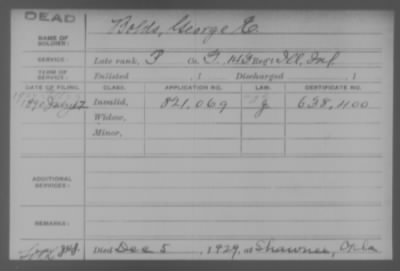 DEAD
NAME OF SOLDIER: Bolds, George E.
SERVICE: Late rank, P Co. F. 118 Reg't Ill, Inf
TERM OF SERVICE: Enlisted , 1 Discharged , 1
DATE OF FILING. CLASS. APPLICATION NO. LAW. CERTIFICATE NO.
1890 July 17 Invalid, 821,069 638,400
Widow,
Minor,
ADDITIONAL SERVICES:
REMARKS:
Died Dec 5, 1929, at Shawnee, Okla